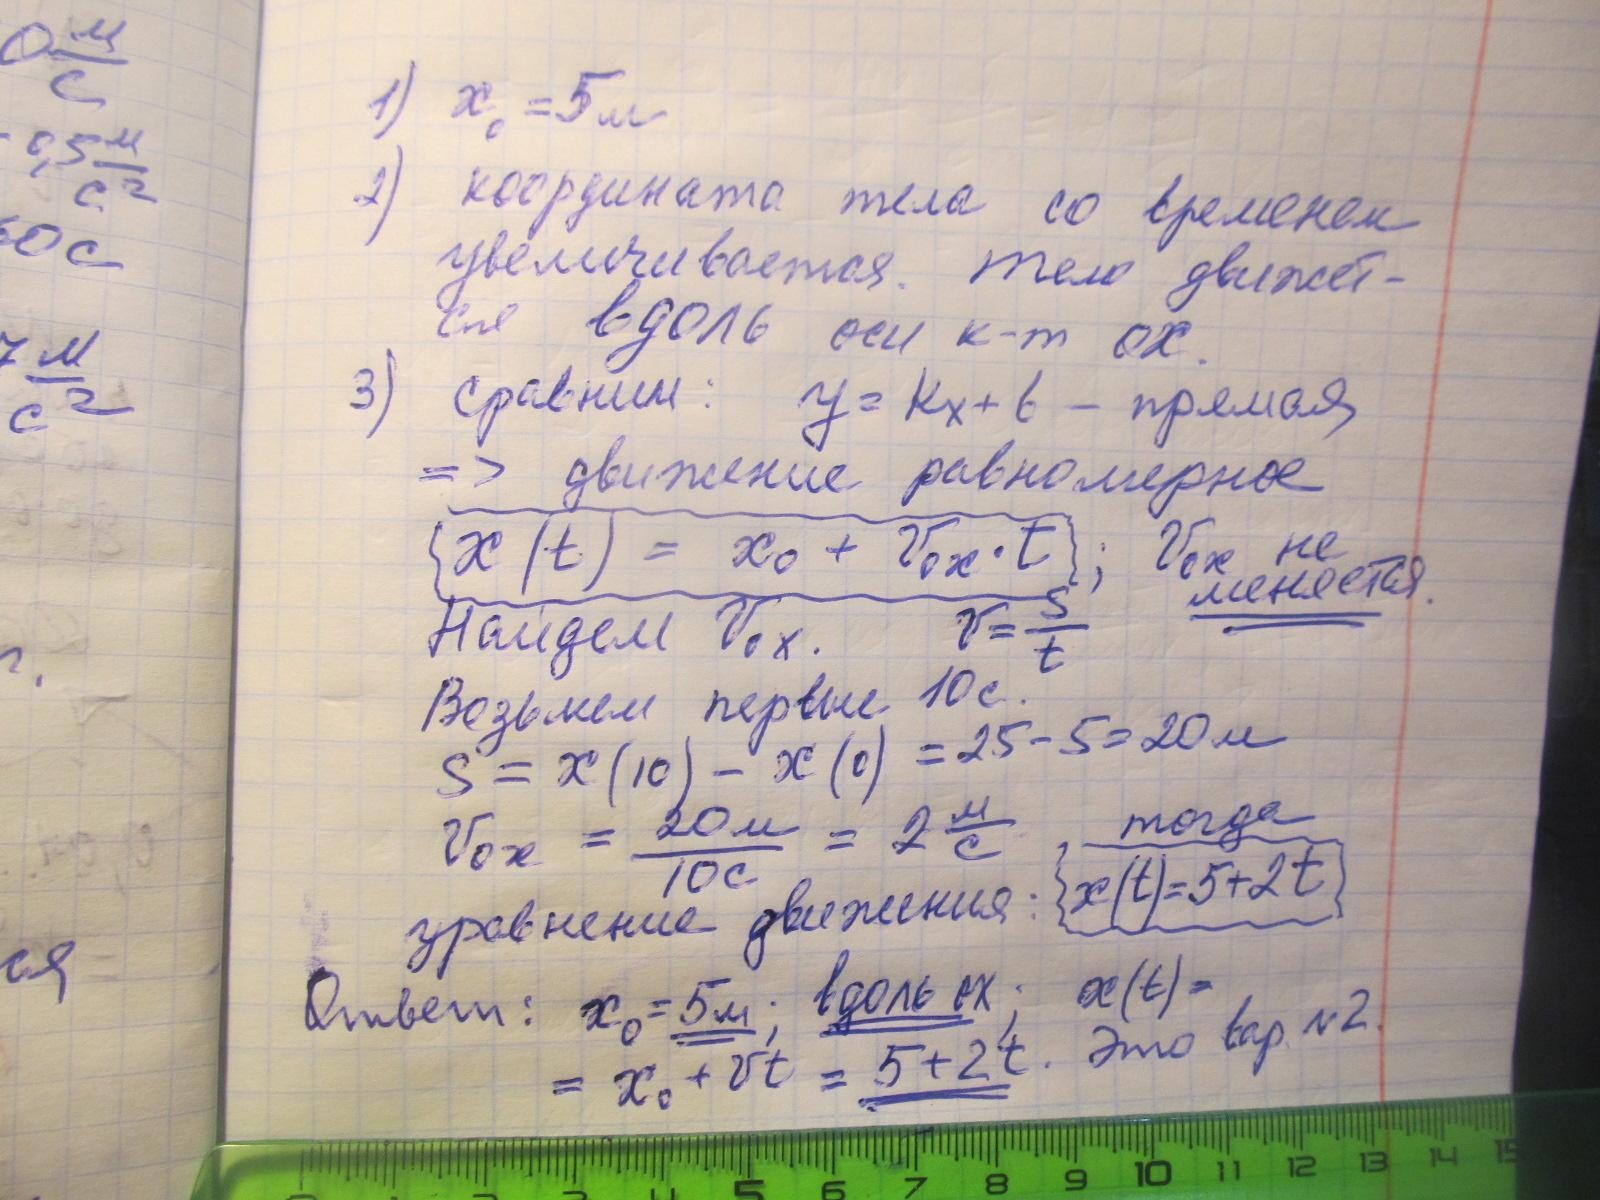 0 м/с
- 0,5 м/с²
60с
7 м/с²
ся
1) x₀ = 5м
2) координата тела со временем
увеличивается. Тело движет-
ся вдоль оси к-т ох.
3) сравним: y = kx + b – прямая
=> движение равномерное
{x(t) = x₀ + V₀ₓ · t}; V₀ₓ не
меняется.
Найдем V₀ₓ. V = S/t
Возьмем первые 10с.
S = x(10) – x(0) = 25 – 5 = 20м
V₀ₓ = 20м/10с = 2 м/с тогда
уравнение движения: {x(t) = 5+2t}
Ответ: x₀ = 5м; вдоль ох; x(t) =
= x₀ + Vt = 5+2t. Это вар №2.
0 1 2 3 4 5 6 7 8 9 10 11 12 13 14 15